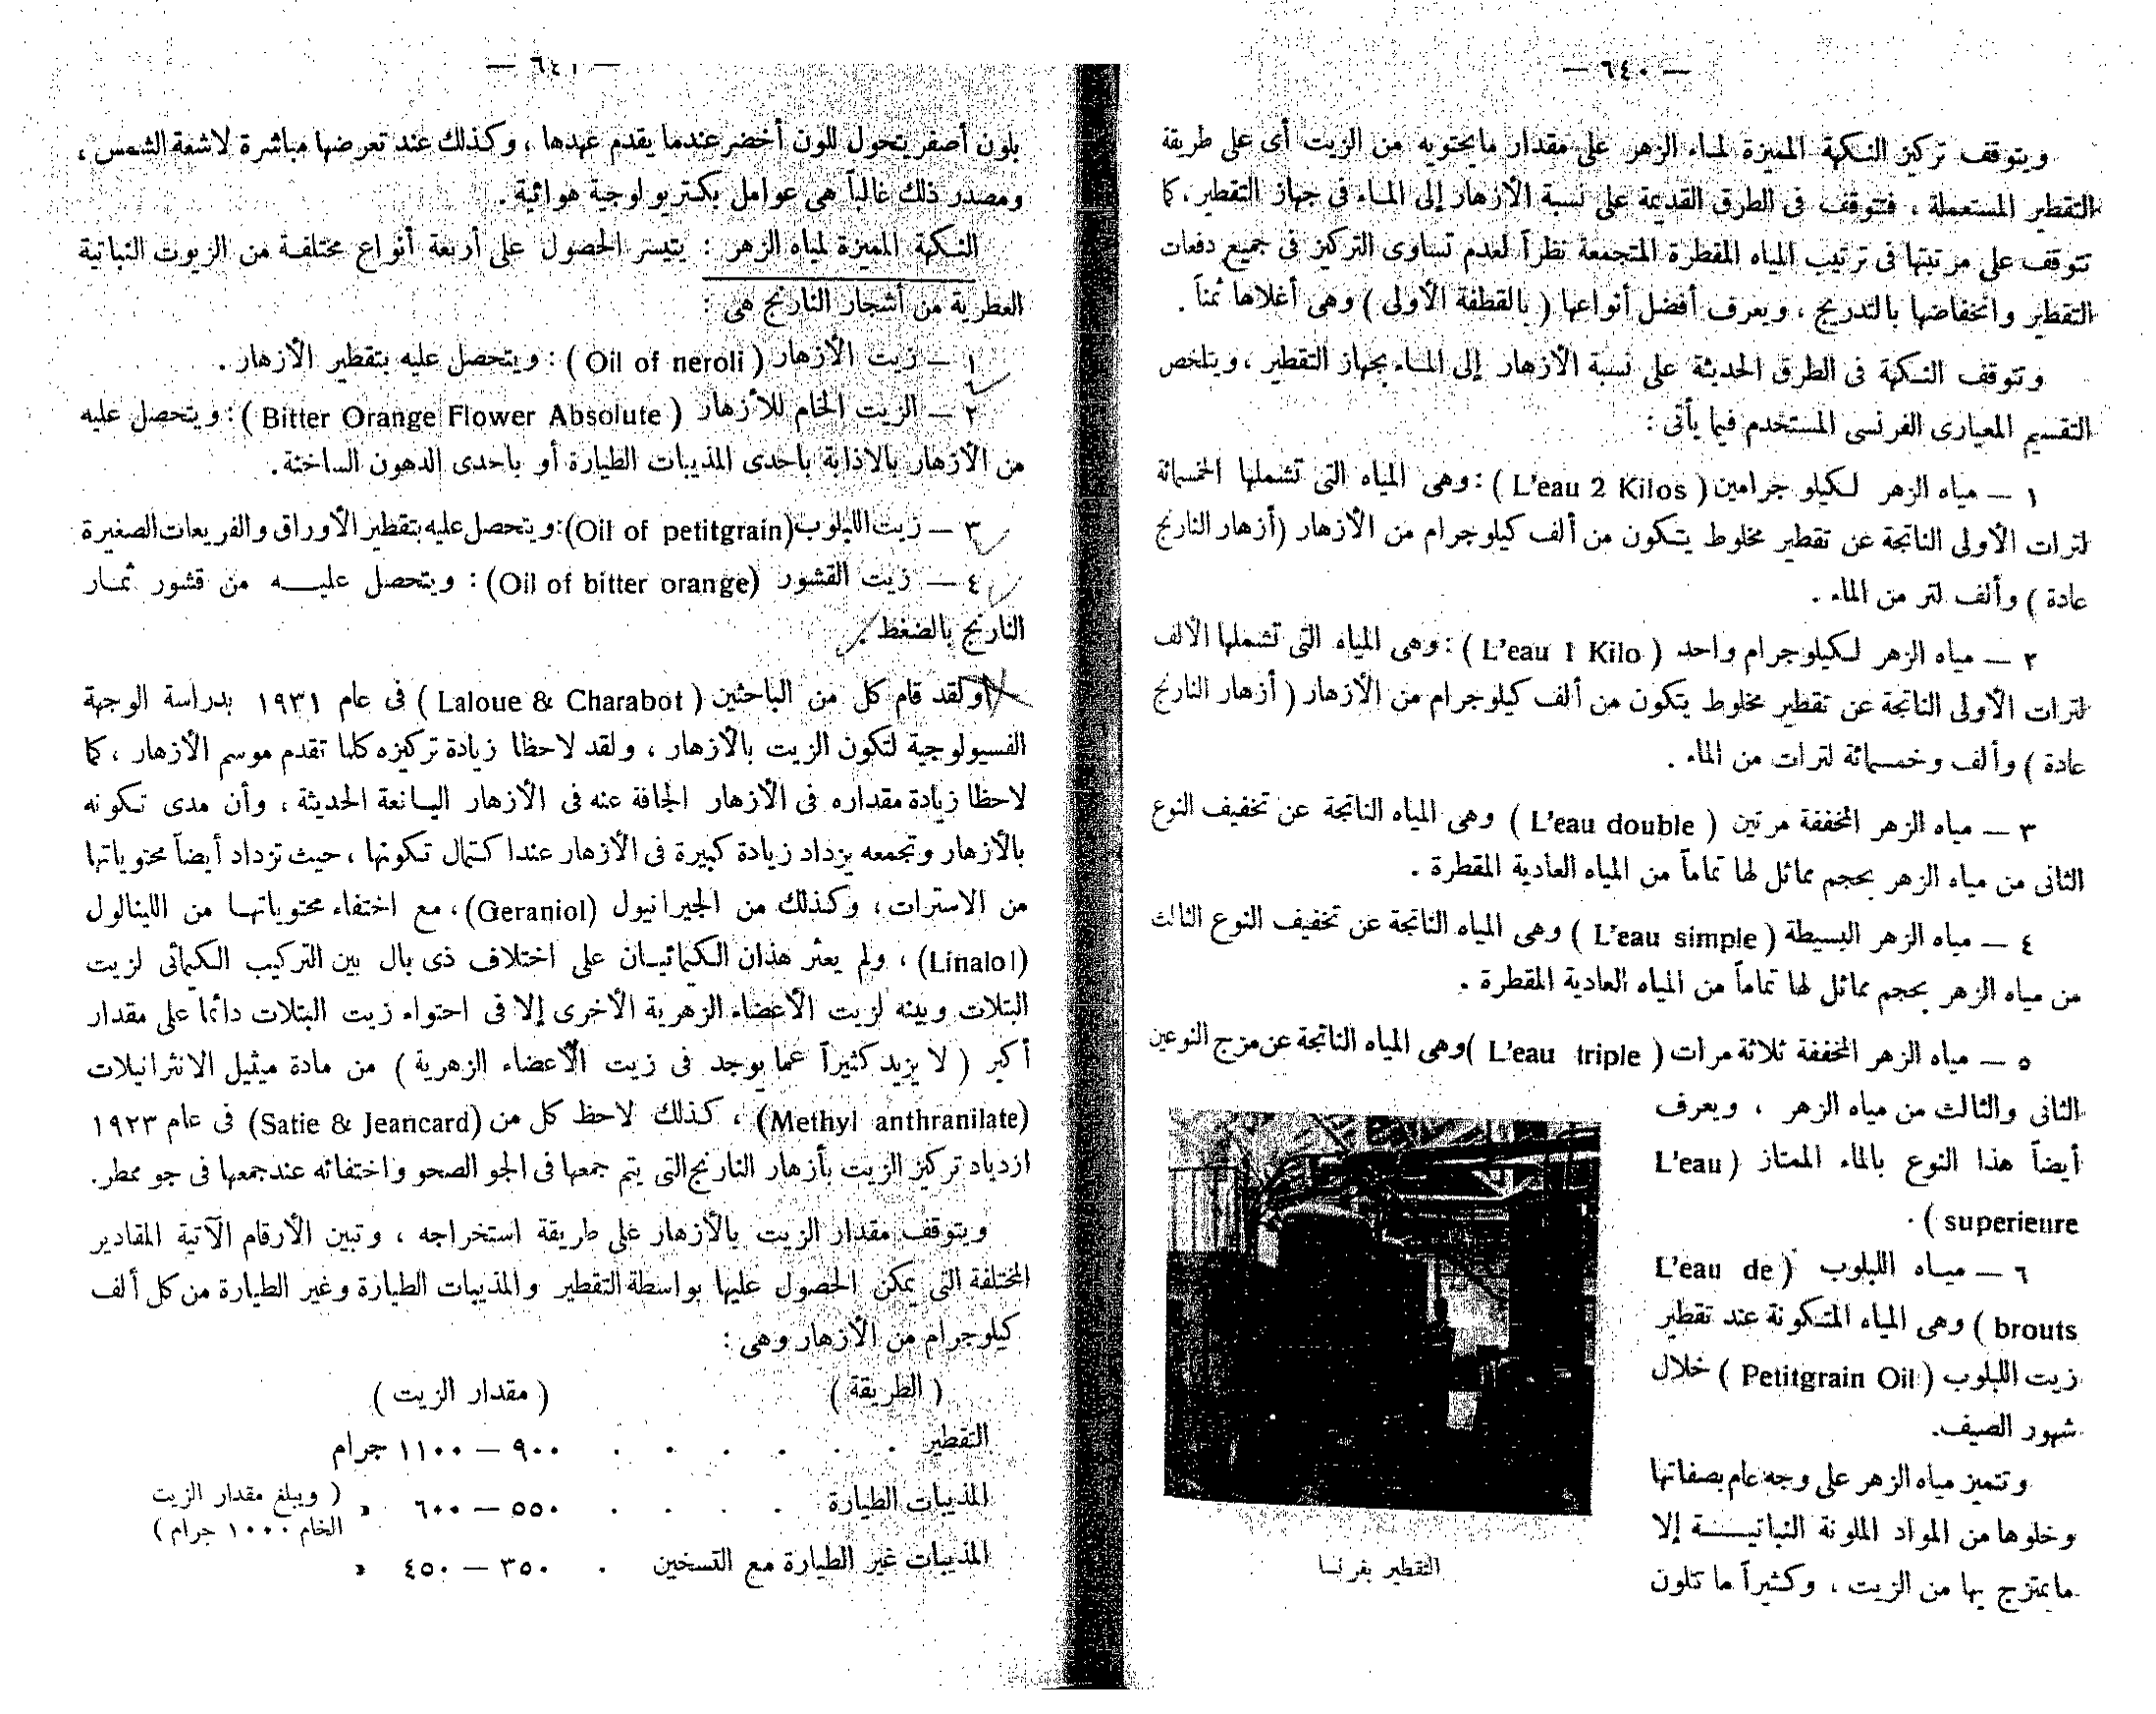 — ٦٤٠ —
ويتوقف تركيز النكهة المميزة لماء الزهر على مقدار مايحتويه من الزيت أى على طريقة
التقطير المستعملة ، فتتوقف فى الطرق القديمة على نسبة الأزهار إلى الماء فى جهاز التقطير ، كما
تتوقف على مرتبتها فى ترتيب المياه المقطرة المتجمعة نظراً لعدم تساوى التركيز فى جميع دفعات
التقطير وانخفاضها بالتدريج ، ويعرف أفضل أنواعها ( بالقطفة الأولى ) وهى أغلاها ثمناً .
وتتوقف النكهة فى الطرق الحديثة على نسبة الأزهار إلى الماء بجهاز التقطير ، ويتلخص
التقسيم المعيارى الفرنسى المستخدم فيما يأتى :
١ — مياه الزهر لكيلو جرامين ( L'eau 2 Kilos ) : وهى المياه التى تشملها الخمسمائة
لترات الأولى الناتجة عن تقطير مخلوط يتكون من ألف كيلوجرام من الأزهار (أزهار النارنج
عادة ) وألف لتر من الماء .
٢ — مياه الزهر لكيلوجرام واحد ( L'eau 1 Kilo ) : وهى المياه التى تشملها الألف
لترات الأولى الناتجة عن تقطير مخلوط يتكون من ألف كيلوجرام من الأزهار ( أزهار النارنج
عادة ) وألف وخمسمائة لترات من الماء .
٣ — مياه الزهر المخففة مرتين ( L'eau double ) وهى المياه الناتجة عن تخفيف النوع
الثانى من مياه الزهر بحجم مماثل لها تماماً من المياه العادية المقطرة .
٤ — مياه الزهر البسيطة ( L'eau simple ) وهى المياه الناتجة عن تخفيف النوع الثالث
من مياه الزهر بحجم مماثل لها تماماً من المياه العادية المقطرة .
٥ — مياه الزهر المخففة ثلاثة مرات ( L'eau triple ) وهى المياه الناتجة عن مزج النوعين
الثانى والثالث من مياه الزهر ، ويعرف
أيضاً هذا النوع بالماء الممتاز ( L'eau
superieure ) .
٦ — مياه اللبلوب ( L'eau de
brouts ) وهى المياه المتكونة عند تقطير
زيت اللبلوب ( Petitgrain Oil ) خلال
شهور الصيف.
وتتميز مياه الزهر على وجه عام بصفائها
وخلوها من المواد الملونة النباتية إلا
مايمتزج بها من الزيت ، وكثيراً ما تتلون
التقطير بفرنسا
— ٦٤١ —
بلون أصفر يتحول للون أخضر عندما يقدم عهدها ، وكذلك عند تعرضها مباشرة لاشعة الشمس ،
ومصدر ذلك غالباً هى عوامل بكتريولوجية هوائية .
النكهة المميزة لمياه الزهر : يتيسر الحصول على أربعة أنواع مختلفة من الزيوت النباتية
العطرية من أشجار النارنج هى :
١ — زيت الأزهار ( Oil of neroli ) : ويتحصل عليه بتقطير الأزهار .
٢ — الزيت الخام للأزهار ( Bitter Orange Flower Absolute ) : ويتحصل عليه
من الأزهار بالاذابة باحدى المذيبات الطيارة أو باحدى الدهون الساخنة.
٣ — زيت اللبلوب (Oil of petitgrain): ويتحصل عليه بتقطير الأوراق والفريعات الصغيرة
٤ — زيت القشور (Oil of bitter orange) : ويتحصل عليه من قشور ثمار
النارنج بالضغط .
ولقد قام كل من الباحثين ( Laloue & Charabot ) فى عام ١٩٣١ بدراسة الوجهة
الفسيولوجية لتكون الزيت بالأزهار ، ولقد لاحظا زيادة تركيزه كلما تقدم موسم الأزهار ، كما
لاحظا زيادة مقداره فى الأزهار الجافة عنه فى الأزهار اليانعة الحديثة ، وأن مدى تكونه
بالأزهار وتجمعه يزداد زيادة كبيرة فى الأزهار عندا كتمال تكونها ، حيث تزداد أيضاً محتوياتها
من الاسترات ، وكذلك من الجيرانيول (Geraniol) ، مع اختفاء محتوياتها من اللينالول
(Linalol) ، ولم يعثر هذان الكيمائيان على اختلاف ذى بال بين التركيب الكيمائى لزيت
البتلات وبينه لزيت الأعضاء الزهرية الأخرى إلا فى احتواء زيت البتلات دائما على مقدار
أكبر ( لا يزيد كثيراً عما يوجد فى زيت الأعضاء الزهرية ) من مادة ميثيل الانثرانيلات
(Methyl anthranilate) ، كذلك لاحظ كل من (Satie & Jeancard) فى عام ١٩٢٣
ازدياد تركيز الزيت بأزهار النارنج التى يتم جمعها فى الجو الصحو واختفائه عند جمعها فى جو ممطر.
ويتوقف مقدار الزيت بالأزهار على طريقة استخراجه ، وتبين الأرقام الآتية المقادير
المختلفة التى يمكن الحصول عليها بواسطة التقطير والمذيبات الطيارة وغير الطيارة من كل ألف
كيلوجرام من الأزهار وهى :
( الطريقة ) ( مقدار الزيت )
التقطير . . . . . . ٩٠٠ — ١١٠٠ جرام
المذيبات الطيارة . . . . ٥٥٠ — ٦٠٠ » ( ويبلغ مقدار الزيت
الخام ١٠٠٠ جرام )
المذيبات غير الطيارة مع التسخين . ٣٥٠ — ٤٥٠ »